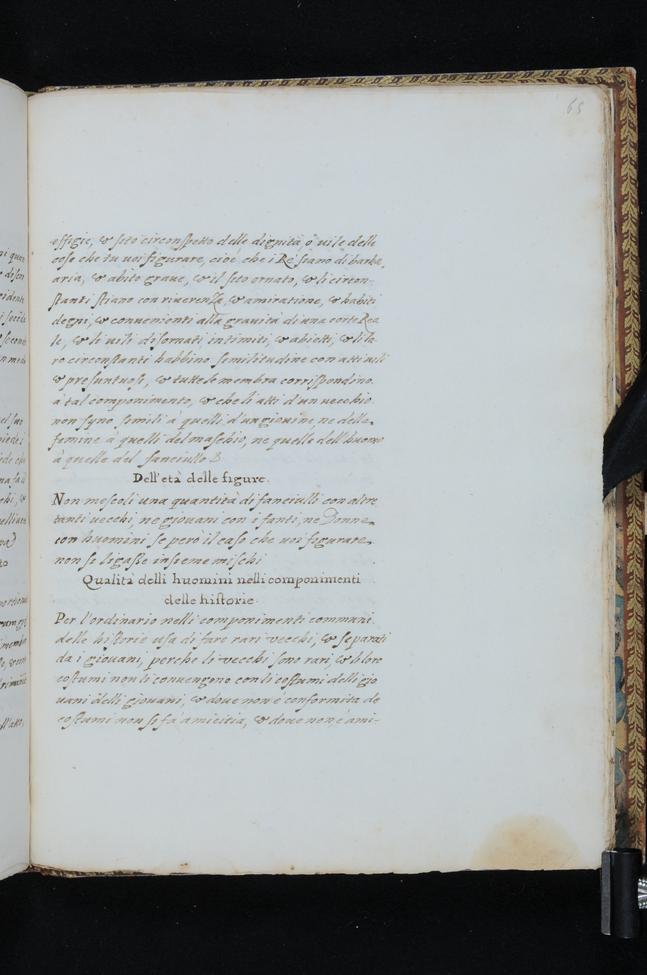 65
effigie, & sito circonspetto delle dignità, ò uile delle
cose che tu uoi figurare, cioè che i Re siano di barba,
aria, & abito graue, & il sito ornato, & li circon-
stanti stiano con riuerenza, & amiratione, & habiti
degni, & conuenienti alla grauità di una corte Rea
le, & li uili disornati intimiti, & abietti, & li lo
ro circonstanti habbino similitudine con atti uili
& presuntuosi, & tutte le membra corrispondino
à tal componimento, & che li atti d'un uecchio
non syno simili à quelli d'un giouine, ne della
femine à quelli del maschio, ne quelle dell'huomo
à quelle del fanciullo
Dell'età delle figure.
Non mescoli una quantità di fanciulli con altre
tanti uecchi, ne giouani con i fanti, ne Donne
con huomini se però il caso che uoi figurare
non si ligasse insieme mischi
Qualità delli huomini nelli componimenti
delle historie
Per l'ordinario nelli componimenti communi
delle historie usa di fare rari vecchi, & separati
da i giouani, perche li vecchi sono rari, & li loro
costumi non si conuengono con li costumi delli gio
uani delli giouani, & doue non è conformita de
costumi non si fà amicitia, & doue non è ami-